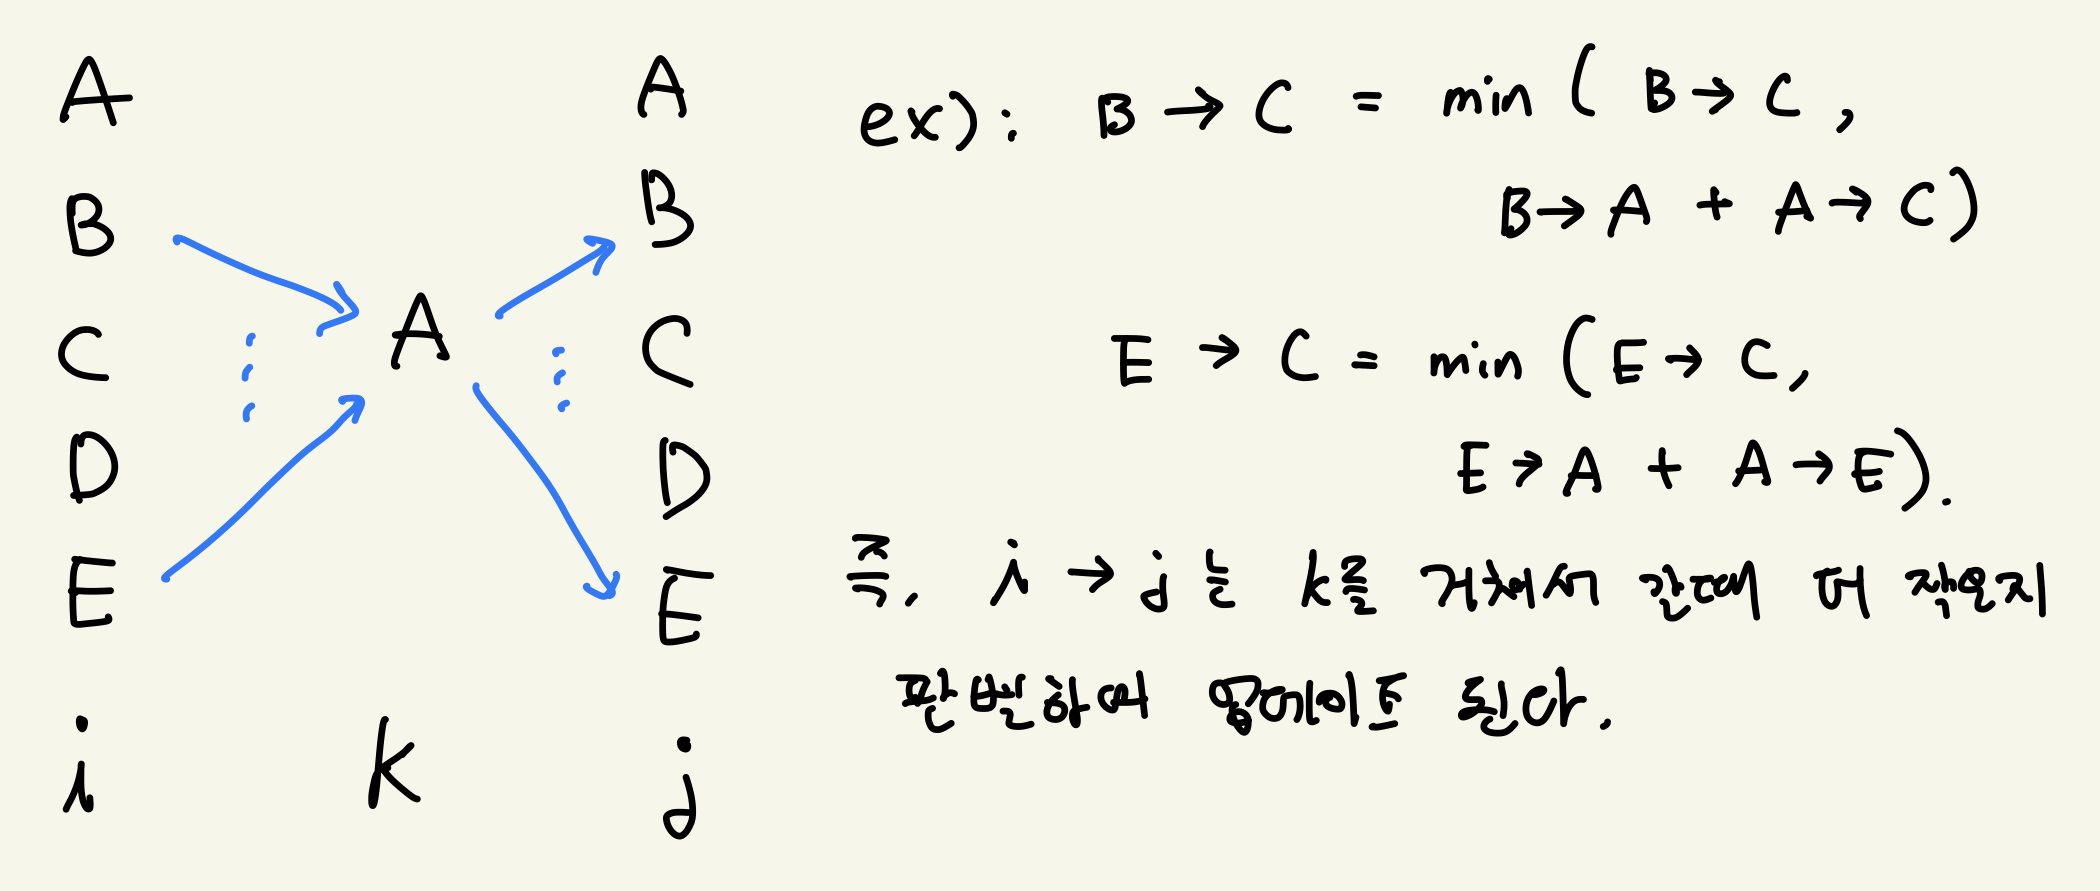 A
B
C
D
E
i
A
k
A
B
C
D
E
j
ex): B → C = min ( B → C,
B → A + A → C)
E → C = min (E → C,
E → A + A → E).
즉, i → j 는 k를 거쳐서 갈때 더 작은지
판별하며 업데이트 된다.